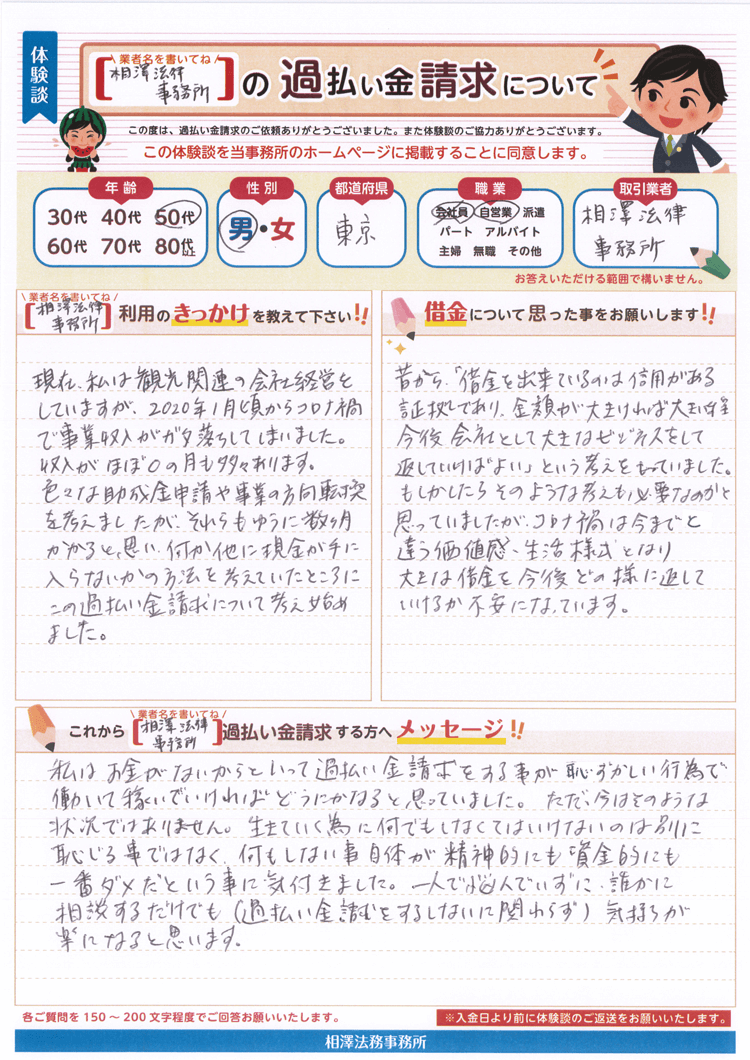 体験談
\ 業者名を書いてね /
【相澤法律事務所】の過払い金請求について
この度は、過払い金請求のご依頼ありがとうございました。また体験談のご協力ありがとうございます。
この体験談を当事務所のホームページに掲載することに同意します。
年齢
30代 40代 50代
60代 70代 80代以上
性別
男・女
都道府県
東京
職業
会社員 自営業 派遣
パート アルバイト
主婦 無職 その他
取引業者
相澤法律
事務所
お答えいただける範囲で構いません。
\ 業者名を書いてね /
【相澤法律事務所】利用のきっかけを教えて下さい!!
現在、私は観光関連の会社経営を
していますが、2020年1月頃からコロナ禍
で事業収入がガタ落ちしてしまいました。
収入がほぼ0の月も多々あります。
色々な助成金申請や事業の方向転換
を考えましたが、それらもゆうに数ヶ月
かかると思い、何か他に現金が手に
入らないかの方法を考えていたところに
この過払い金請求について考え始め
ました。
借金について思った事をお願いします!!
昔から、「借金を出来ているのは信用がある
証拠であり、金額が大きければ大きい程
今後会社として大きなビジネスをして
返していけばよい」という考えをもっていました。
もしかしたらそのような考えも必要なのかと
思っていましたが、コロナ禍は今までと
違う価値感、生活様式となり
大きな借金を今後どの様に返して
いけるか不安になっています。
\ 業者名を書いてね /
これから【相澤法律事務所】過払い金請求する方へメッセージ!!
私はお金がないからといって過払い金請求をする事が恥ずかしい行為で
働いて稼いでいければどうにかなると思っていました。ただ、今はそのような
状況ではありません。生きていく為に何でもしなくてはいけないのは別に
恥じる事ではなく、何もしない事自体が精神的にも資金的にも
一番ダメだという事に気付きました。一人で悩んでいずに、誰かに
相談するだけでも(過払い金請求をするしないに関わらず)気持ちが
楽になると思います。
各ご質問を150～200文字程度でご回答お願いいたします。
※入金日より前に体験談のご返送をお願いいたします。
相澤法務事務所